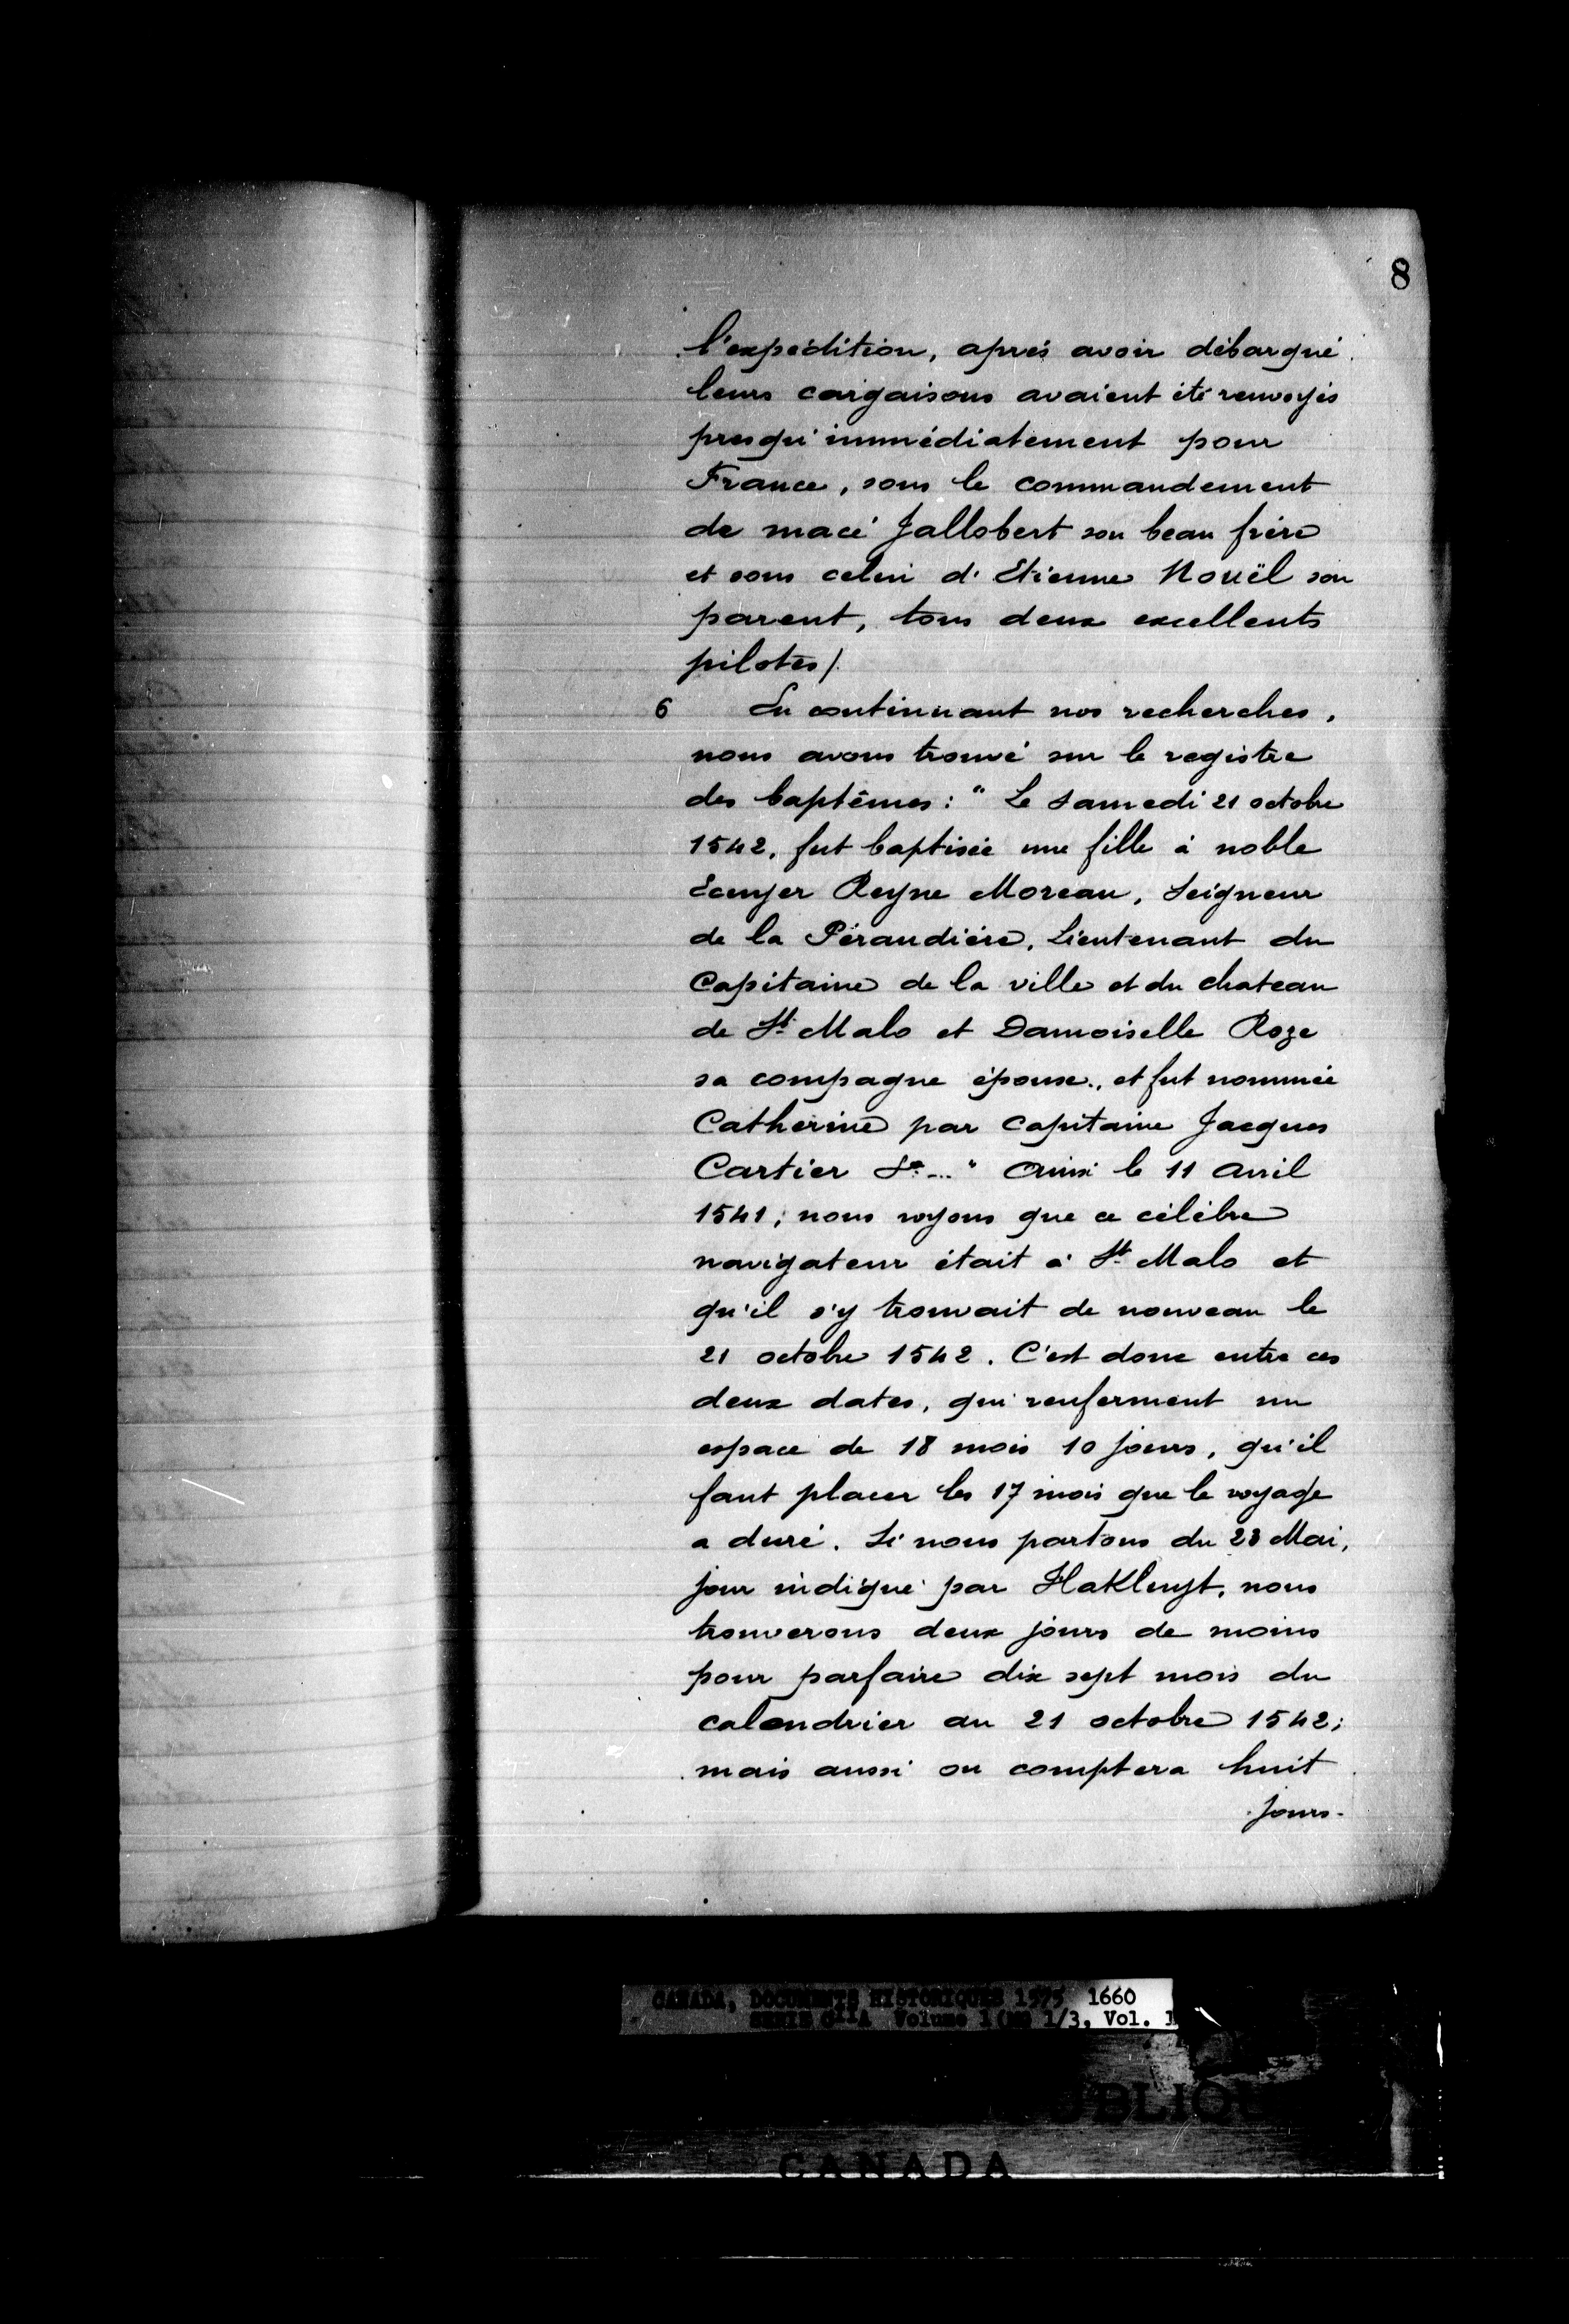 8
l'expédition, après avoir débarqué
leurs cargaisons avaient été renvoyés
presqu'immédiatement pour
France, sous le commandement
de macé Jallobert son beau frère
et sous celui d'Etienne Nouël son
parent, tous deux excellents
pilotes/.
6 En continuant nos recherches,
nous avons trouvé sur le registre
des baptêmes: "Le Samedi 21 octobre
1542, fut baptisée une fille à noble
Ecuyer Reyne Moreau, Seigneur
de la Péraudière, Lieutenant du
Capitaine de la ville et du chateau
de St Malo et Damoiselle Roze
sa compagne épouse., et fut nommée
Catherine par Capitaine Jacques
Cartier &a..." Ainsi le 11 Avril
1541, nous voyons que ce célèbre
navigateur était à St Malo et
qu'il s'y trouvait de nouveau le
21 octobre 1542. C'est donc entre ces
deux dates, qui renferment un
espace de 18 mois 10 jours, qu'il
faut placer les 17 mois que le voyage
a duré. Si nous partons du 23 Mai,
jour indiqué par HaKluyt, nous
trouverons deux jours de moins
pour parfaire dix sept mois du
calendrier au 21 octobre 1542;
mais aussi on comptera huit
jours-
CANADA, DOCUMENTS HISTORIQUES 1575 1660
SERIE C11A Volume 1 (MG 1/3, Vol. 1
CANADA